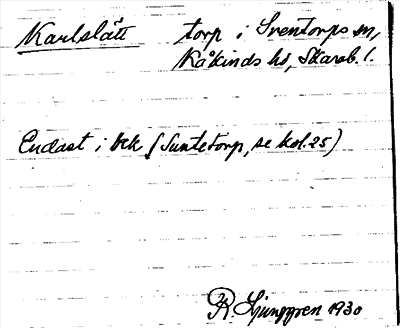 Karlslätt torp i Sventorps sn,
Kåkinds hd, Skarab. l.
Endast i bek (Suntetorp, se kol. 25)
R. Ljunggren 1930